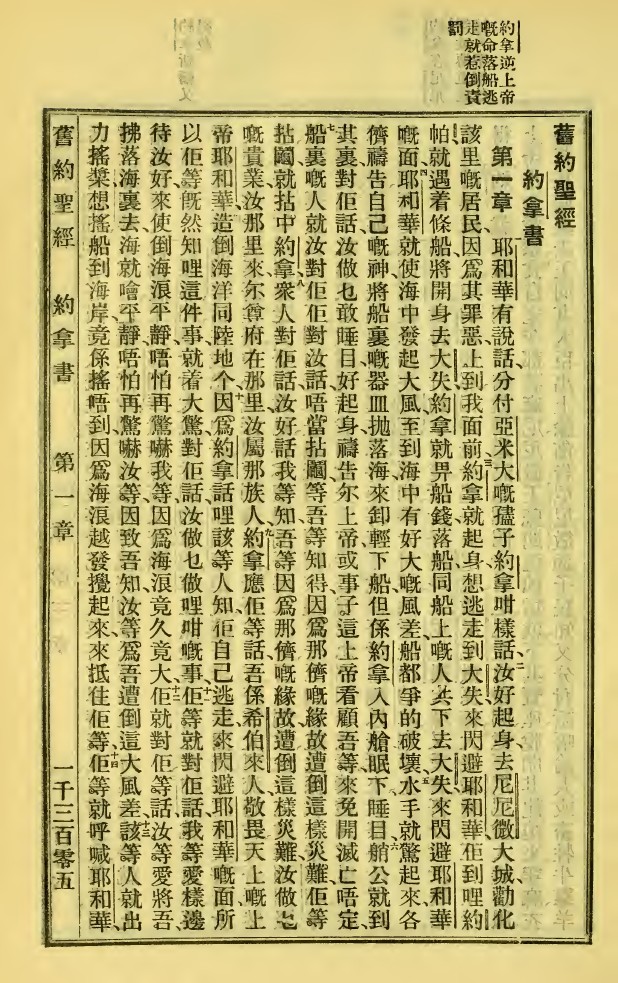 約拿逆上帝
嘅命落船逃
走就惹倒責
罰
舊約聖經
約拿書
第一章 耶和華有說話、分付亞米大嘅孻子約拿咁樣話、二汝好起身去尼尼微大城勸化
該里嘅居民、因爲其罪惡上到我面前、三約拿就起身想逃走到大失來閃避耶和華佢到哩約
帕就遇着條船將開身去大失、約拿就畀船錢落船同船上嘅人共下去大失來閃避耶和華
嘅面、四耶和華就使海中發起大風至到海中有好大嘅風差船都爭的破壞、五水手就驚起來各
儕禱告自己嘅神將船裏嘅器皿抛落海來卸輕下船但係約拿入內艙眠下睡目、六艄公就到
其裏對佢話、汝做乜敢睡目好起身禱告尔上帝或事子這上帝看顧吾等來免開滅亡唔定、
七船裏嘅人就汝對佢佢對汝話唔當拈鬮等吾等知得因爲那儕嘅緣故遭倒這樣災難佢等
拈鬮就拈中約拿、八衆人對佢話、汝好話我等知吾等因爲那儕嘅緣故遭倒這樣災難汝做乜
嘅貴業汝那里來、尔尊府在那里、汝屬那族人、九約拿應佢等話、吾係希伯來人敬畏天上嘅上
帝耶和華、造倒海洋同陸地个、十因爲約拿話哩該等人知佢自己逃走來閃避耶和華嘅面所
以佢等既然知哩這件事、就着大驚對佢話汝做乜做哩咁嘅事、十一佢等就對佢話、我等愛樣邊
待汝好來使倒海浪平靜、唔怕再驚嚇我等、因爲海浪竟久竟大、十二佢就對佢等話、汝等愛將吾
拂落海裏去海就噲平靜、唔怕再驚嚇汝等、因致吾知、汝等爲吾遭倒這大風差、十三該等人就出
力搖槳想搖船到海岸竟係搖唔到、因爲海浪越發攪起來來抵住佢等、十四佢等就呼喊耶和華、
舊約聖經 約拿書 第一章 一千三百零五